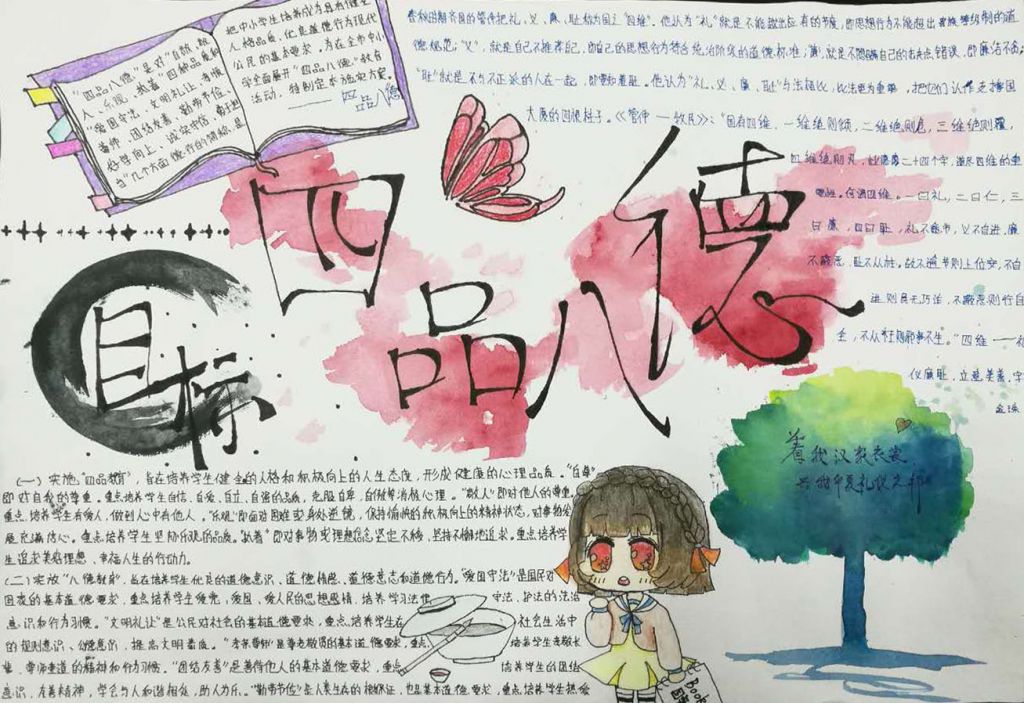 "四品八德"是对"自尊、敬
人、乐观、执着"四种品质和
"爱国守法、文明礼让、孝敬
尊师、团结友善、勤劳节俭、
好学向上、诚实守信、勇于担
当"几个方面德行的简称,是
把中小学生培养成为具有健全
人格品质、优良道德行为现代
公民的基本要求。为在全市中小
学全面展开"四品八德"教育
活动,特制定本施实方案。
——四品八德
春秋时期齐国的管仲把礼,义,廉,耻称为国之"四维"。他认为"礼"就是不能越出应有的节度,即思想行为不能超出 等级制的道
德规范;"义",就是自己不推荐己,即自己的思想行为符合统治阶级的道德标准;廉,就是不隐瞒自己的缺点错误,即廉洁不贪;
"耻"就是不与不正派的人在一起,即要知羞耻。他认为"礼、义、廉、耻"与法相比,比法更为重要,把它们认作支撑国
大厦的四根柱子。《管仲一牧民》:"国有四维,一维绝则倾,二维绝则危,三维绝则覆,
四维绝则灭,
二十四个字,道尽四维的重
要性。何谓四维,一曰礼,二曰仁,三
曰廉,四曰耻,礼不愈节,义不自进,廉
不蔽恶,耻不从枉。故不逾节则上位安,不自
进则民无巧诈,不蔽恶则行自
全,不从枉则邪事不生。"四维——礼
仪廉耻,立意美善,字
四品八德
目标
着我汉家衣裳
兴我华夏礼仪之邦
(一)实施"四品教育",旨在培养学生健全的人格和积极向上的人生态度,形成健康的心理品质。"自尊"
即对自我的尊重。重点培养学生自信、自爱、自立、自强的品质,克服自卑,自傲等消极心理。"敬人"即对他人的尊重。
重点培养学生有爱人,做到心中有他人。"乐观"即面对困难或身处逆境,保持愉悦的积极向上的精神状态,对事物发
展充满信心。重点培养学生坚持乐观的品质。"执着"即对事物或理想信念坚定不移,坚持不懈地追求。重点培养学
生追求美好理想、幸福人生的行动力。
(二)实施"八德教育",旨在培养学生优良的道德意识、道德情感、道德意志和道德行为。"爱国守法"是国民对
国家的基本道德要求,重点培养学生爱党,爱国,爱人民的思想感情,培养学习法律 守法、护法的法治
意识和行为习惯。"文明礼让"是公民对社会的基本道德要求,重点培养学生在 社会生活中
的规则意识、 意识,提高文明素质。"孝亲尊师"是尊老敬贤的基本道德要求,重点 培养学生敬长
辈,尊师重道的精神和行为习惯。"团结友善"是善待他人的基本道德要求,重点 培养学生的团结
意识、友善精神,学会与人和谐相处,助人为乐。"勤劳节俭"是人类生存的根本保证,也是基本道德要求,重点培养学生热爱
Book